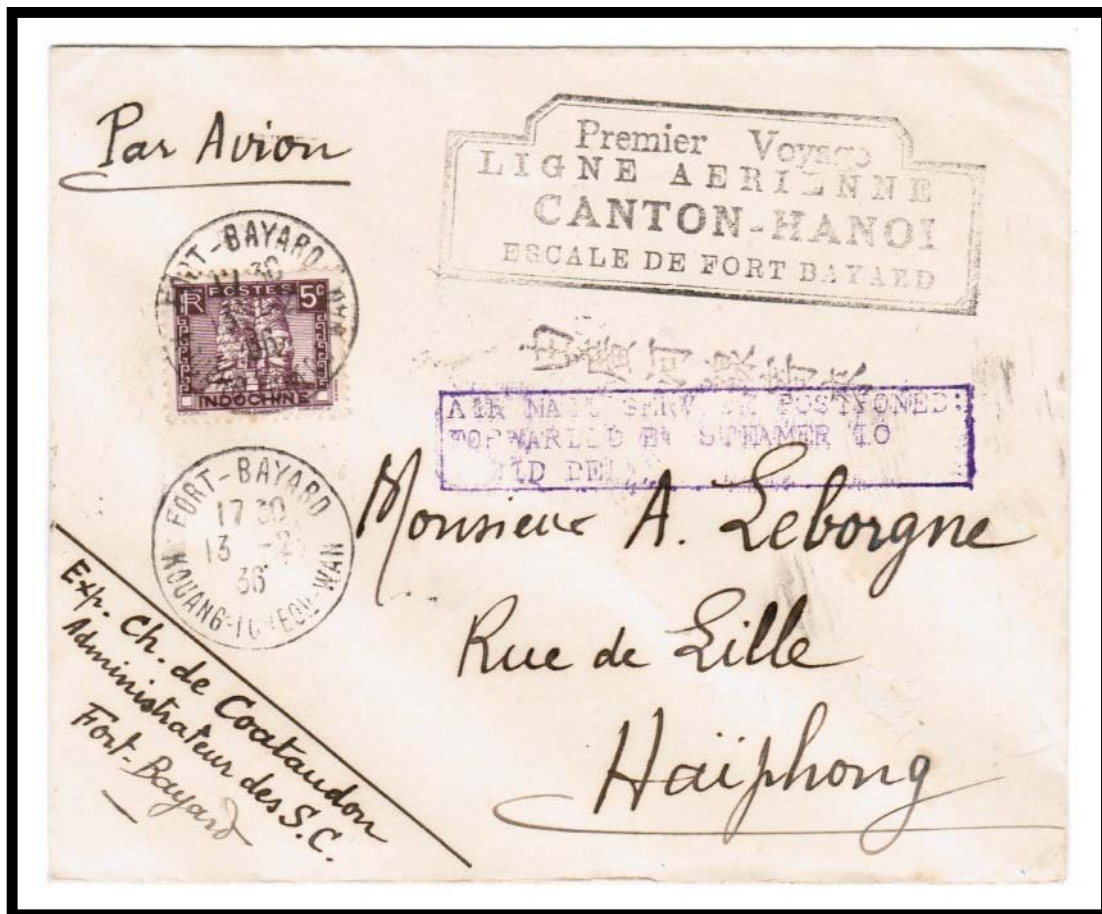 Par Avion
Premier Voyage
LIGNE AERIENNE
CANTON-HANOI
ESCALE DE FORT BAYARD
FORT-BAYARD
RF POSTES 5c
INDOCHINE
由廣河線寄
AIR MAIL SERVICE POSTPONED:
FORWARDED BY STEAMER TO
FORT-BAYARD
17 30
13
36
KOUANG-TCHEOU-WAN
Monsieur A. Leborgne
Rue de Lille
Haïphong
Exp. Ch. de Coataudon
Administrateur des S.C.
Fort-Bayard